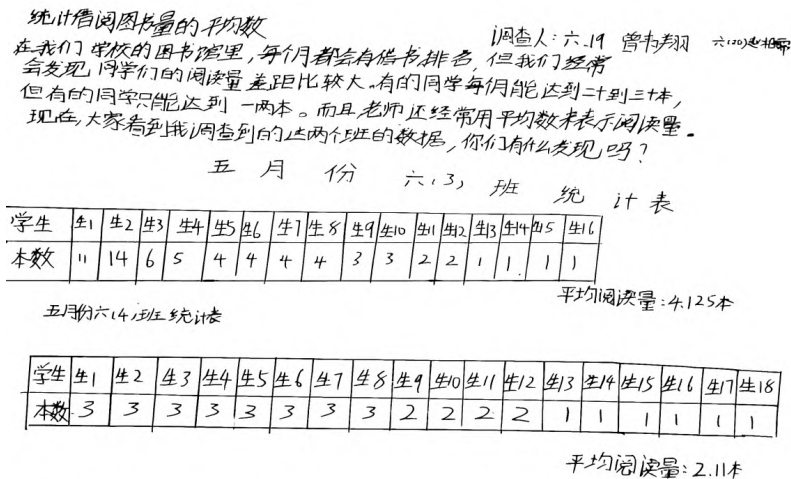 统计借阅图书量的平均数
调查人:六.19 曾韦翔 六(20)
在我们学校的图书馆里,每个月都会有借书排名,但我们经常
会发现同学们的阅读量差距比较大。有的同学每个月能达到二十到三十本,
但有的同学只能达到一两本。而且老师还经常用平均数来表示阅读量。
现在,大家看到我调查到的这两个班的数据,你们有什么发现吗?
五月份六(3)班统计表
学生 生1 生2 生3 生4 生5 生6 生7 生8 生9 生10 生11 生12 生13 生14 生15 生16
本数 11 14 6 5 4 4 4 4 3 3 2 2 1 1 1 1
平均阅读量:4.125本
五月份六(4)班统计表
学生 生1 生2 生3 生4 生5 生6 生7 生8 生9 生10 生11 生12 生13 生14 生15 生16 生17 生18
本数 3 3 3 3 3 3 3 3 2 2 2 2 1 1 1 1 1 1
平均阅读量:2.11本